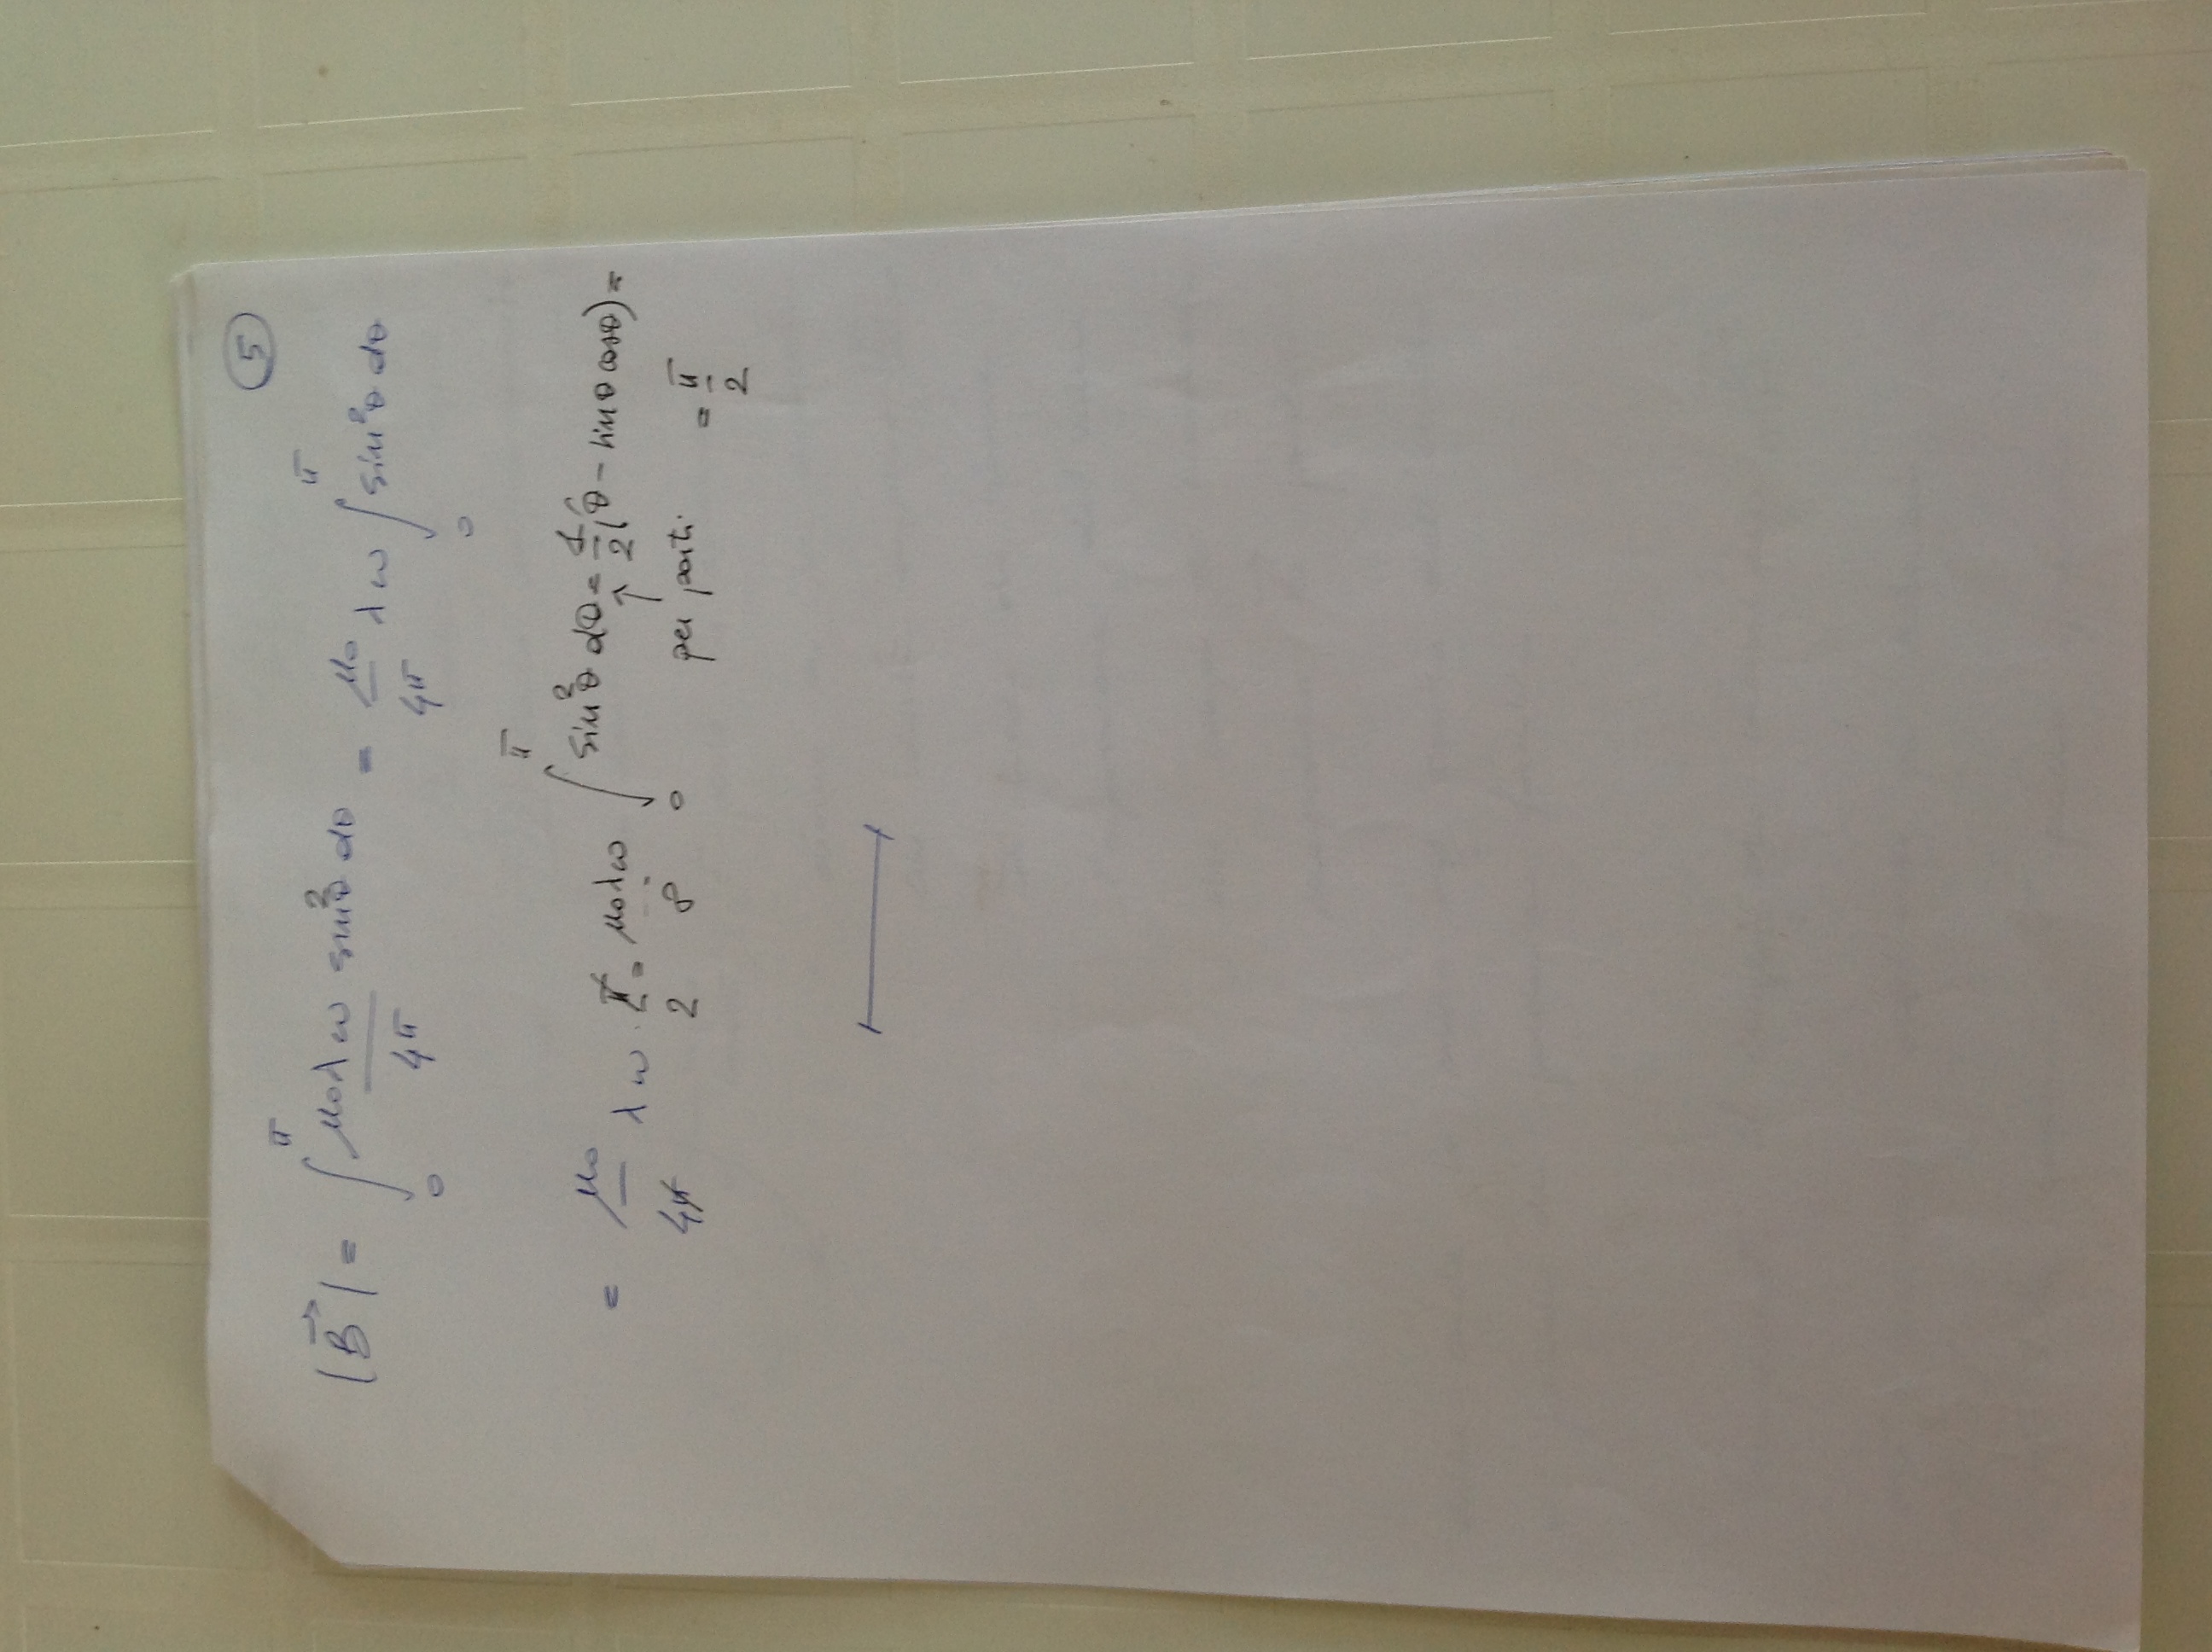 5
|B⃗| = ∫₀^π μ₀λω/4π sin²θ dθ = μ₀/4π λω ∫₀^π sin²θ dθ
= μ₀/4π λω · π/2 = μ₀λω/8 ∫₀^π sin²θ dθ = 1/2 (θ - sinθ cosθ) =
↑ per parti = π/2